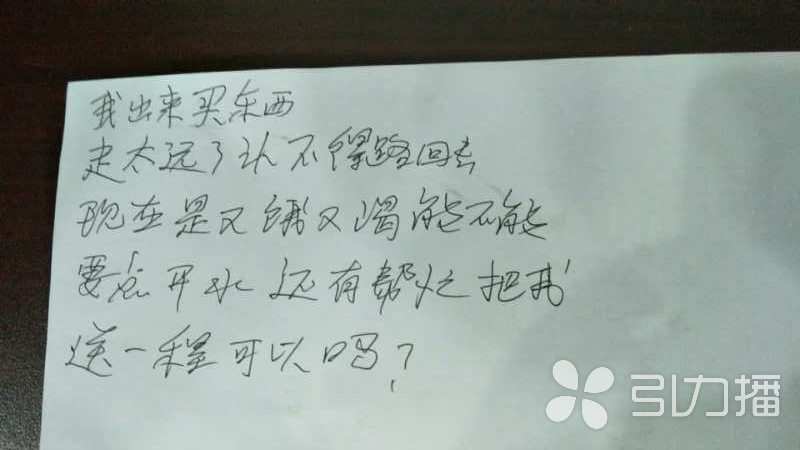 我出来买东西
走太远了认不得路回去
现在是又饿又渴能不能
要点开水还有帮忙把我
送一程可以吗?
引力播